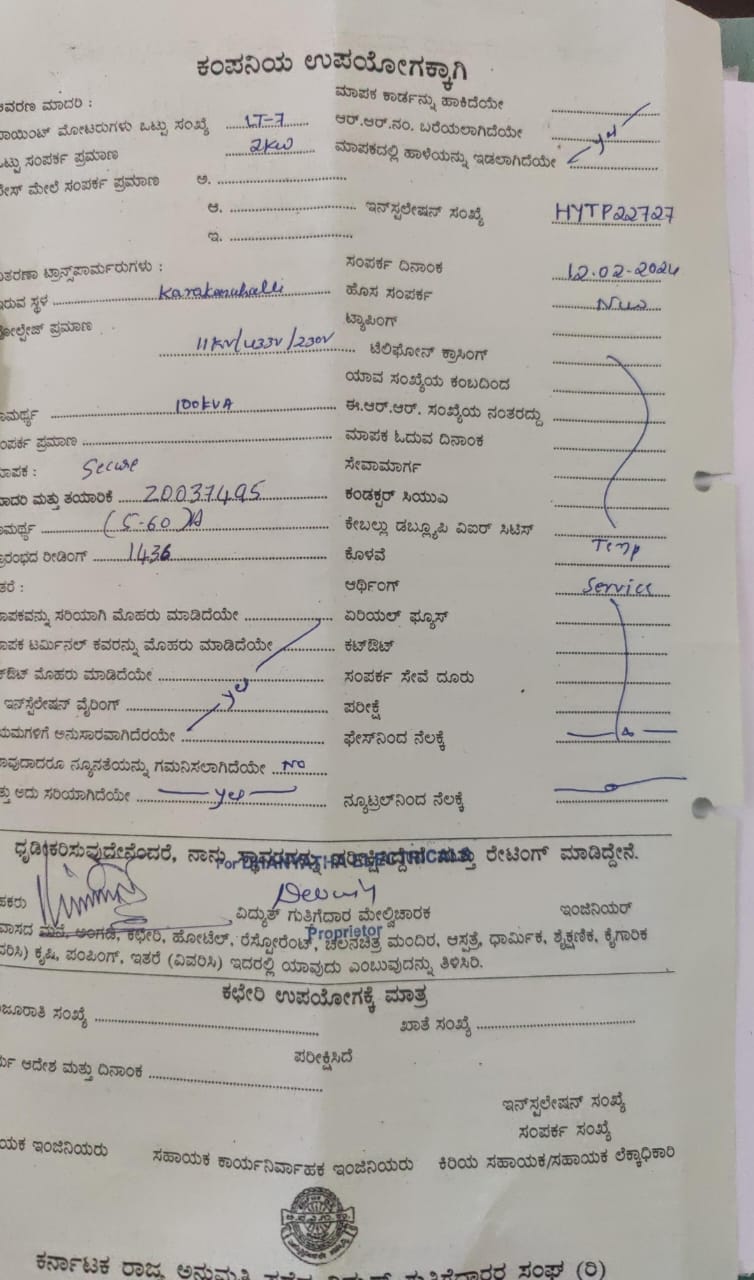 ಕಂಪನಿಯ ಉಪಯೋಗಕ್ಕಾಗಿ
ಆವರಣ ಮಾದರಿ : ಮಾಪಕ ಕಾರ್ಡನ್ನು ಹಾಕಿದೆಯೇ
ಪಾಯಿಂಟ್ ಮೋಟರುಗಳು ಒಟ್ಟು ಸಂಖ್ಯೆ LT-7 ಆರ್.ಆರ್.ನಂ. ಬರೆಯಲಾಗಿದೆಯೇ yes
ಒಟ್ಟು ಸಂಪರ್ಕ ಪ್ರಮಾಣ 2KW ಮಾಪಕದಲ್ಲಿ ಹಾಳೆಯನ್ನು ಇಡಲಾಗಿದೆಯೇ
ಫೇಸ್ ಮೇಲೆ ಸಂಪರ್ಕ ಪ್ರಮಾಣ ಅ.
ಆ. ಇನ್‌ಸ್ಟಲೇಷನ್ ಸಂಖ್ಯೆ HYTP22727
ಇ.
ವಿತರಣಾ ಟ್ರಾನ್ಸ್‌ಪಾರ್ಮರುಗಳು : ಸಂಪರ್ಕ ದಿನಾಂಕ 12.02-2024
ಇರುವ ಸ್ಥಳ ಹೊಸ ಸಂಪರ್ಕ New
ವೋಲ್ಟೇಜ್ ಪ್ರಮಾಣ ಟ್ಯಾಪಿಂಗ್
11KV/433V/230V ಟೆಲಿಫೋನ್ ಕ್ರಾಸಿಂಗ್
ಯಾವ ಸಂಖ್ಯೆಯ ಕಂಬದಿಂದ
ಸಾಮರ್ಥ್ಯ 100KVA ಈ.ಆರ್.ಆರ್. ಸಂಖ್ಯೆಯ ನಂತರದ್ದು
ಸಂಪರ್ಕ ಪ್ರಮಾಣ ಮಾಪಕ ಓದುವ ದಿನಾಂಕ
ಮಾಪಕ : Secure ಸೇವಾಮಾರ್ಗ
ಮಾದರಿ ಮತ್ತು ತಯಾರಿಕೆ 20037495 ಕಂಡಕ್ಟರ್ ಸಿಯುಎ
ಸಾಮರ್ಥ್ಯ (5-60)A ಕೇಬಲ್ಲು ಡಬ್ಲ್ಯೂಪಿ ವಿಐರ್ ಸಿಟಿಸ್
ಪ್ರಾರಂಭದ ರೀಡಿಂಗ್ 1436 ಕೊಳವೆ Temp
ಇತರೆ : ಆರ್ಥಿಂಗ್ Service
ಮಾಪಕವನ್ನು ಸರಿಯಾಗಿ ಮೊಹರು ಮಾಡಿದೆಯೇ ಏರಿಯಲ್ ಫ್ಯೂಸ್
ಮಾಪಕ ಟರ್ಮಿನಲ್ ಕವರನ್ನು ಮೊಹರು ಮಾಡಿದೆಯೇ ಕಟ್‌ಔಟ್
ಕಟ್‌ಔಟ್ ಮೊಹರು ಮಾಡಿದೆಯೇ ಸಂಪರ್ಕ ಸೇವೆ ದೂರು
ಇನ್‌ಸ್ಟಲೇಷನ್ ವೈರಿಂಗ್ yes ಪರೀಕ್ಷೆ
ನಿಯಮಗಳಿಗೆ ಅನುಸಾರವಾಗಿದೆರಯೇ ಫೇಸ್‌ನಿಂದ ನೆಲಕ್ಕೆ
ಯಾವುದಾದರೂ ನ್ಯೂನತೆಯನ್ನು ಗಮನಿಸಲಾಗಿದೆಯೇ NO
ಮತ್ತು ಅದು ಸರಿಯಾಗಿದೆಯೇ yes ನ್ಯೂಟ್ರಲ್‌ನಿಂದ ನೆಲಕ್ಕೆ
ಧೃಡೀಕರಿಸುವುದೇನೆಂದರೆ, ನಾನು ಸ್ಥಾವರವನ್ನು ಪರೀಕ್ಷಿಸಿದ್ದೇನೆ ಮತ್ತು ರೇಟಿಂಗ್ ಮಾಡಿದ್ದೇನೆ.
For DHANYATHA ELECTRICALS
ವಿದ್ಯುತ್ ಗುತಿಗೆದಾರ ಮೇಲ್ವಿಚಾರಕ ಇಂಜಿನಿಯರ್
Proprietor
ವಾಸದ ಮನೆ, ಅಂಗಡಿ, ಕಛೇರಿ, ಹೋಟೆಲ್, ರೆಸ್ಟೋರೆಂಟ್, ಚಲನಚಿತ್ರ ಮಂದಿರ, ಆಸ್ಪತ್ರೆ, ಧಾರ್ಮಿಕ, ಶೈಕ್ಷಣಿಕ, ಕೈಗಾರಿಕ
(ವಿವರಿಸಿ) ಕೃಷಿ, ಪಂಪಿಂಗ್, ಇತರೆ (ವಿವರಿಸಿ) ಇದರಲ್ಲಿ ಯಾವುದು ಎಂಬುವುದನ್ನು ತಿಳಿಸಿರಿ.
ಕಛೇರಿ ಉಪಯೋಗಕ್ಕೆ ಮಾತ್ರ
ಮಂಜೂರಾತಿ ಸಂಖ್ಯೆ ಖಾತೆ ಸಂಖ್ಯೆ
ಪರೀಕ್ಷಿಸಿದೆ
ಆದೇಶ ಮತ್ತು ದಿನಾಂಕ
ಇನ್‌ಸ್ಟಲೇಷನ್ ಸಂಖ್ಯೆ
ಸಂಪರ್ಕ ಸಂಖ್ಯೆ
ಸಹಾಯಕ ಇಂಜಿನಿಯರು ಸಹಾಯಕ ಕಾರ್ಯನಿರ್ವಾಹಕ ಇಂಜಿನಿಯರು ಕಿರಿಯ ಸಹಾಯಕ/ಸಹಾಯಕ ಲೆಕ್ಕಾಧಿಕಾರಿ
ಕರ್ನಾಟಕ ರಾಜ್ಯ ಅನುಮತಿ ಪಡೆದ ವಿದ್ಯುತ್ ಗುತ್ತಿಗೆದಾರರ ಸಂಘ (ರಿ)